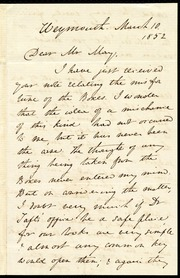 Weymouth. March 10.
1852
Dear Mr May,
I have just received
your note relating the misfor
tune of the Boxes. I wonder
that the idea of a mischance
of this kind, had not occured
to me but it has never been
the case. The thought of any
thing being taken from the
Boxes never entered my mind
But on considering the matter,
I doubt very much if Dr
Taft's office be a safe place
for our Books are very simple
& almost any common key
would open them; & again they